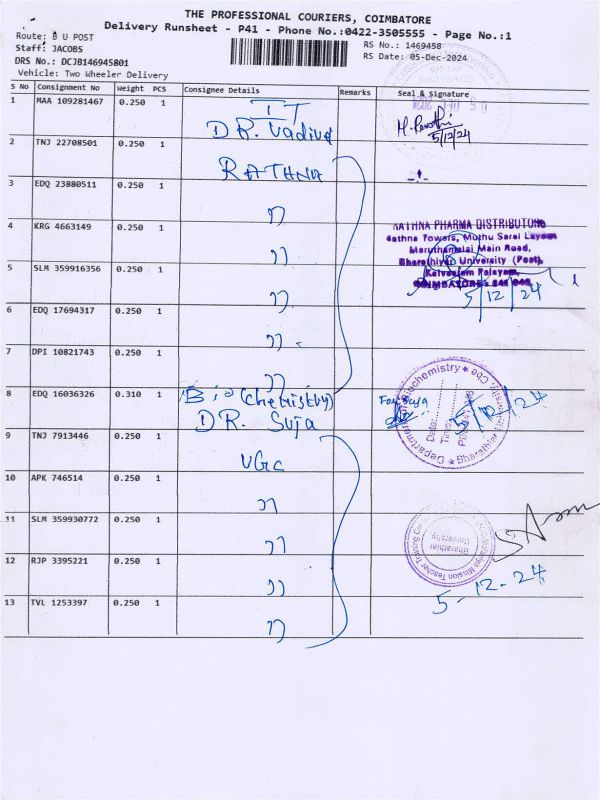 THE PROFESSIONAL COURIERS, COIMBATORE
Delivery Runsheet - P41 - Phone No.:0422-3505555 - Page No.:1
Route: B U POST
RS No.: 1469458
Staff: JACOBS
RS Date: 05-Dec-2024
DRS No.: DCJB146945801
Vehicle: Two Wheeler Delivery
S No Consignment No Weight PCS Consignee Details Remarks Seal & Signature
1 MAA 109281467 0.250 1 IT
DR. Vadivel
5/12/24
2 TNJ 22708501 0.250 1 RATHNA
3 EDQ 23880511 0.250 1 "
4 KRG 4663149 0.250 1 "
RATHNA PHARMA DISTRIBUTORS
Rathna Towers, Muthu Sarai Layout
Maruthamalai Main Road,
Bharathiyar University (Post),
Kalveeram Palayam,
COIMBATORE - 641 046.
5 SLM 359916356 0.250 1 "
5/12/24
6 EDQ 17694317 0.250 1 "
7 DPI 10821743 0.250 1 "
8 EDQ 16036326 0.310 1 Bio (chemistry)
DR. Suja
For Suja
5/12/24
Department of Biochemistry
Date:
Time:
Bharathiar University, Cbe
9 TNJ 7913446 0.250 1 UGC
10 APK 746514 0.250 1 "
11 SLM 359930772 0.250 1 "
Bharathiar
University
12 RJP 3395221 0.250 1 "
5-12-24
13 TVL 1253397 0.250 1 "